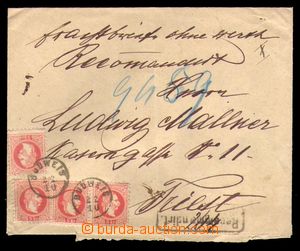 frachtbrief ohne werth
Recomandirt
9459
Herrn
Ludwig Mallner
N. 11
Triest
BUDWEIS
burda-auction.com